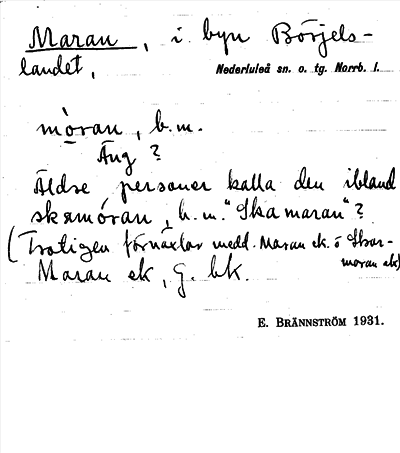 Maran, i byn Börjels-
landet,
Nederluleå sn. o. tg. Norrb. l.
mòran, b.m.
Äng?
Äldre personer kalla den ibland
skamóran, h.m. "Skamaran"?
(Troligen förväxlar medd. Maran ek. o Skar-
moran ek)
Maran ek, g. bk.
E. BRÄNNSTRÖM 1931.